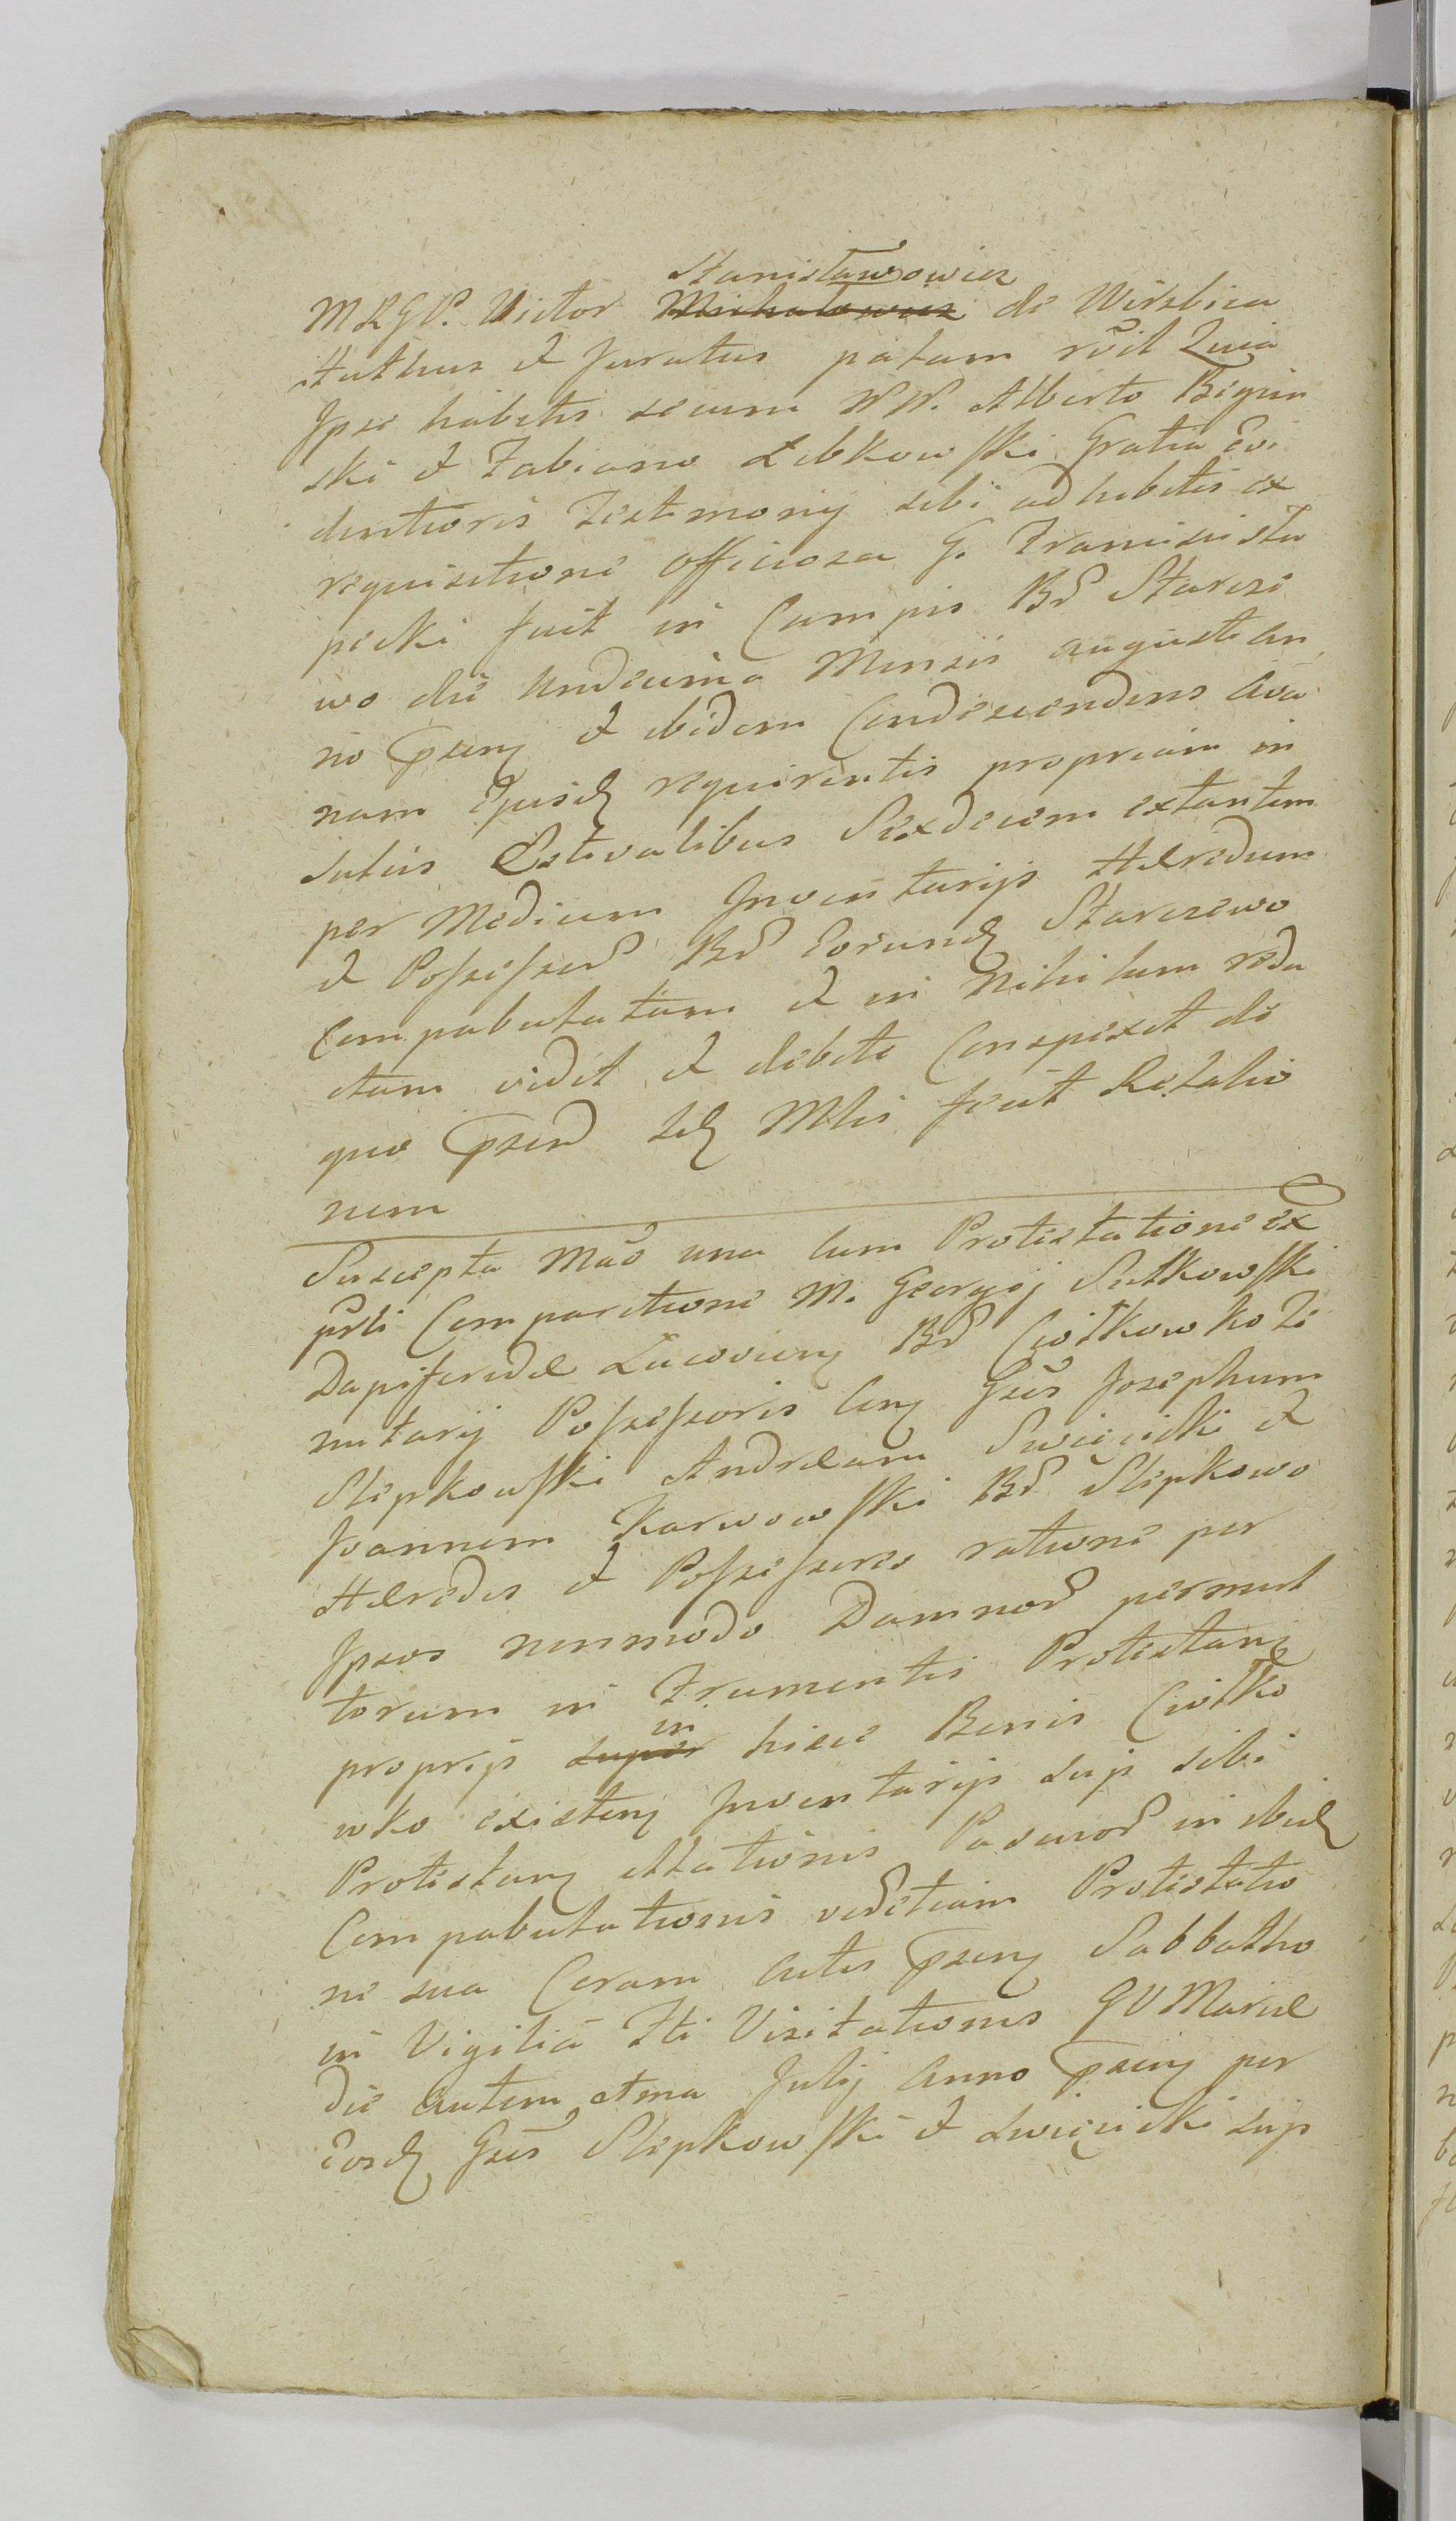 Stanisławowicz
MRGP. Victor Michałowicz de Wirzbica
stathus et Juratus palam rvit Quia
Ipse habitis secum NN. Alberto Biguń
ski et Fabiano Lubkowski Gratia Evi
dentioris Testimonij sibi adhibitis ex
requisitione officiosa G. Francisci Stu
pecki fuit in Campis Br Starcze
wo die undecima Mensis augusti An
no Praen et ibidem Condescendens Ave
nam Ejusd requirentis propriam in
sulcis Estivalibus Sexdecem extantem
per Medium Inventarijs Haeredum
et Possessor Br eorund Starczewo
Compabulatam et in Nihilum redu
ctam vidit et debite Conspexit de
quo Praend sud Mlis fecit Relatio
nem
Suscepta Mao una cum Protestatione ex
prli Comparitione M. Georgij Sutkowski
Dapiferidae Lucoviens Br Ciołkowko Te
nutarij Possessoris Cong Gsos Josephum
Slepkowski Andraeam Swięcicki et
Joannem Karwowski Br Slepkowo
Haeredes et Possessores ratione per
Ipsos nonmodo Damnor permul
torum in Frumentis Protestang
proprijs super in hisce Bonis Ciołko
wko existeng Inventarijs suis sibi
Protestang illationis Pascuor in ibid
Compabulationis vedetiam Protestatio
ne sua Coram Actis Praeng Sabbatho
in Vigilia Fti Visitationis GVMariae
die autem ima Julij Anno Praeng per
Eosd Gsos Slepkowski et Swięcicki sup